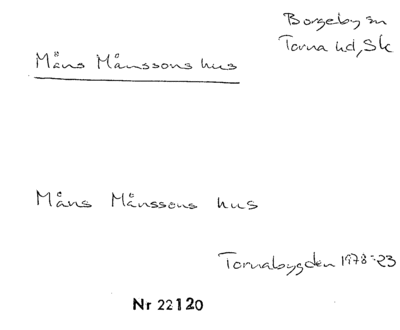 Borgeby sn
Torna hd, Sk
Måns Månssons hus
Måns Månssons hus
Tornabygden 1978:23
Nr 22120